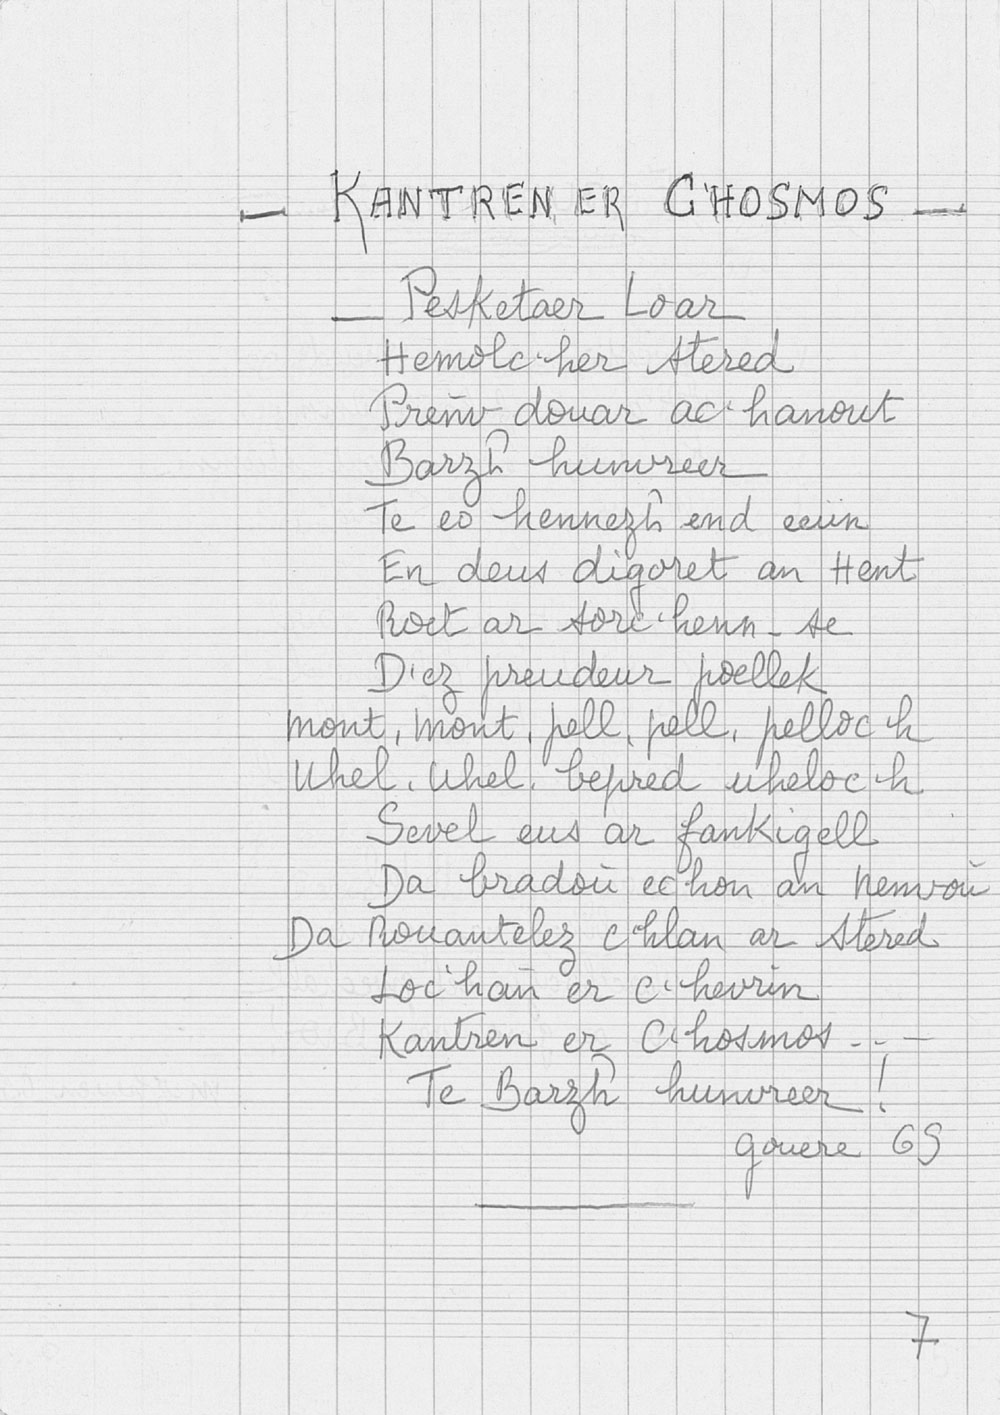 — KANTREN ER C'HOSMOS —
— Pesketaer Loar
Hemolc'her stered
Preñv douar ac'hanout
Barzh hunvreer
Te eo hennezh end eeün
En deus digoret an Hent
Roet ar sorc'henn-se
D'ez preudeur poellek
mont, mont, pell, pell, pelloc'h
Uhel, Uhel, bepred uheloc'h
Sevel eus ar fankigell
Da bradoù ec'hon an Nenvoù
Da Rouantelez c'hlan ar Stered
Loc'hañ er c'hevrin
Kantren er C'hosmos - - —
Te Barzh hunvreer !
gouere 69
7